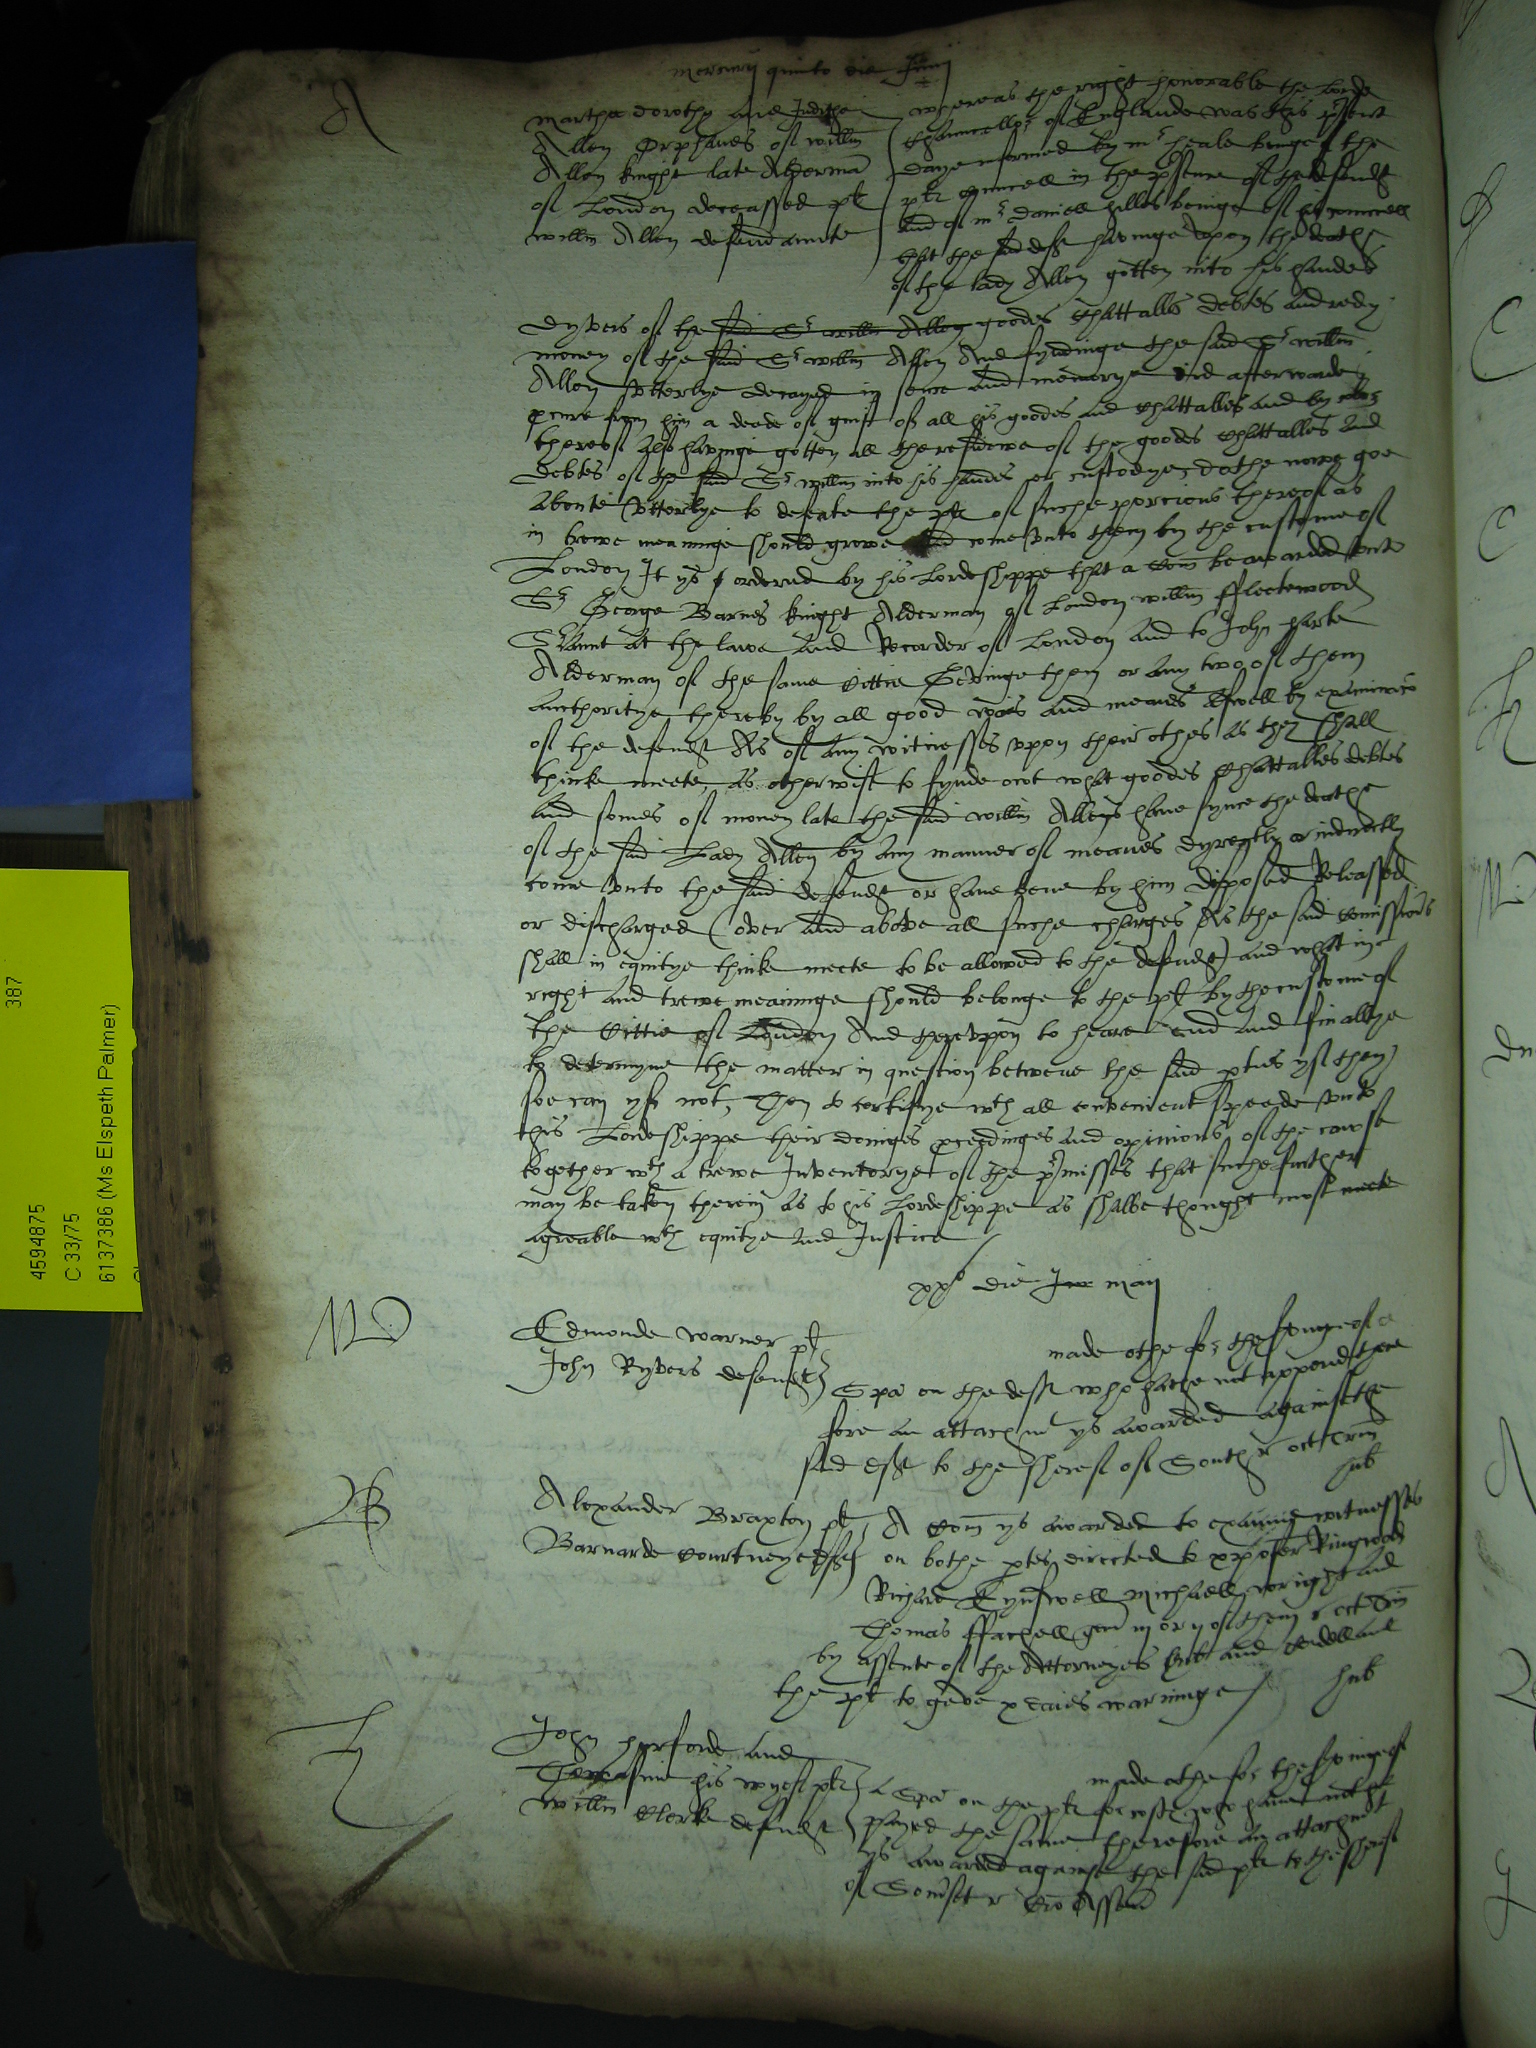 mercurij quinto die Junij
A
Martha Dorothy and Judithe
Allen Orphanes of willm
Allen knight late Alderma
of London deceassed plt
willm Allen defendaunte
whereas the right honorable the Lorde
Chauncellor of Englande was this present
daye informed by mr heale beinge of the
plts councell in the presence of the defendt
and of mr Daniell hilles beinge of his councell
that the said deft havinge upon the deathe
of the lady Allen gotten into his handes
dyvers of the said Sr willm Allen goodes Chattalls debtes and redy
money of the said Sr willm Allen And fyndinge the said Sr willm
Allen utterlye decayed in sence and memorye did afterwarde
pcure from him a deede of guift of all his goodes and Chattalles and by
thereof also havinge gotten all the residewe of the goodes Chattalles and
Debtes of the said Sr willm into his handes or custodye, dothe nowe goe
aboute utterlye to defeate the plts of suche porcions thereof as
in trewe meaninge should growe and come unto them by the custome of
London It ys ordered by his Lordeshippe that a Com be awarded unto
Sr George Barnes knight Alderman of London willm ffleetewood
Srjaunt at the lawe and Recorder of London and to John Harte
Alderman of the same Cittie Gevinge them or any two of them
aucthoritye thereby by all good wais and meanes Aswell by examinacio
of the defendt As of any witnesses upon their othes as they shall
thinke meete, as otherwise to fynde owt what goodes Chattalles debtes
and somes of money late the said willm Allens have synce the deathe
of the said Lady Allen by any manner of meanes dyrectly or indirectly
come unto the said defendt or have bene by him disposed Released
or discharged (over and above all suche charges As the said Comissiors
shall in equitye thinke meete to be allowed to the defendt) and what in
right and trewe meaninge should belonge to the plts by the custome of
the Cittie of London And thereupon to heare end and finallye
to determyne the matter in question betweene the said pties yf they
soe can yf not, Then to certifye wth all convenient speede unto
his Lordeshippe their doinges pcedinges and opinions of the cawse
together wth a trewe Inventorye of the pmisses that suche further
may be taken therein as to his Lordeshippe as shalbe thought most meete
agreable wth equitye and Justice
xxo die Jun maij
W
Edmonde warner plt
John Ryvers defendt
made othe for the svinge of a
Spa on the deft who hathe not appered there
fore an attachmt ys awarded against the
said deft to the sheref of South r oct Trin
hub
B
Alexander Braxton plt
Barnarde Courtneye deft
A Com ys awarded to examine witnesses
on bothe ptes directed to xpofer Ringwood
Richard Kynswell Michaell wright and
Thomas ffachell gen iij or ij of them r oct Trin
by assente of the Attorneyes hub and
the plt to geve x daies warninge
hub
H
John Hurford and
his wyef plts
willm Clerke defendt
made othe for the svinge of
a Spa on the plts for costes who have not
payed the same therefore an attachmt
ys awarded against the said plts to the sheref
of Somset r
4594875
387
C 33/75
6137386 (Ms Elspeth Palmer)